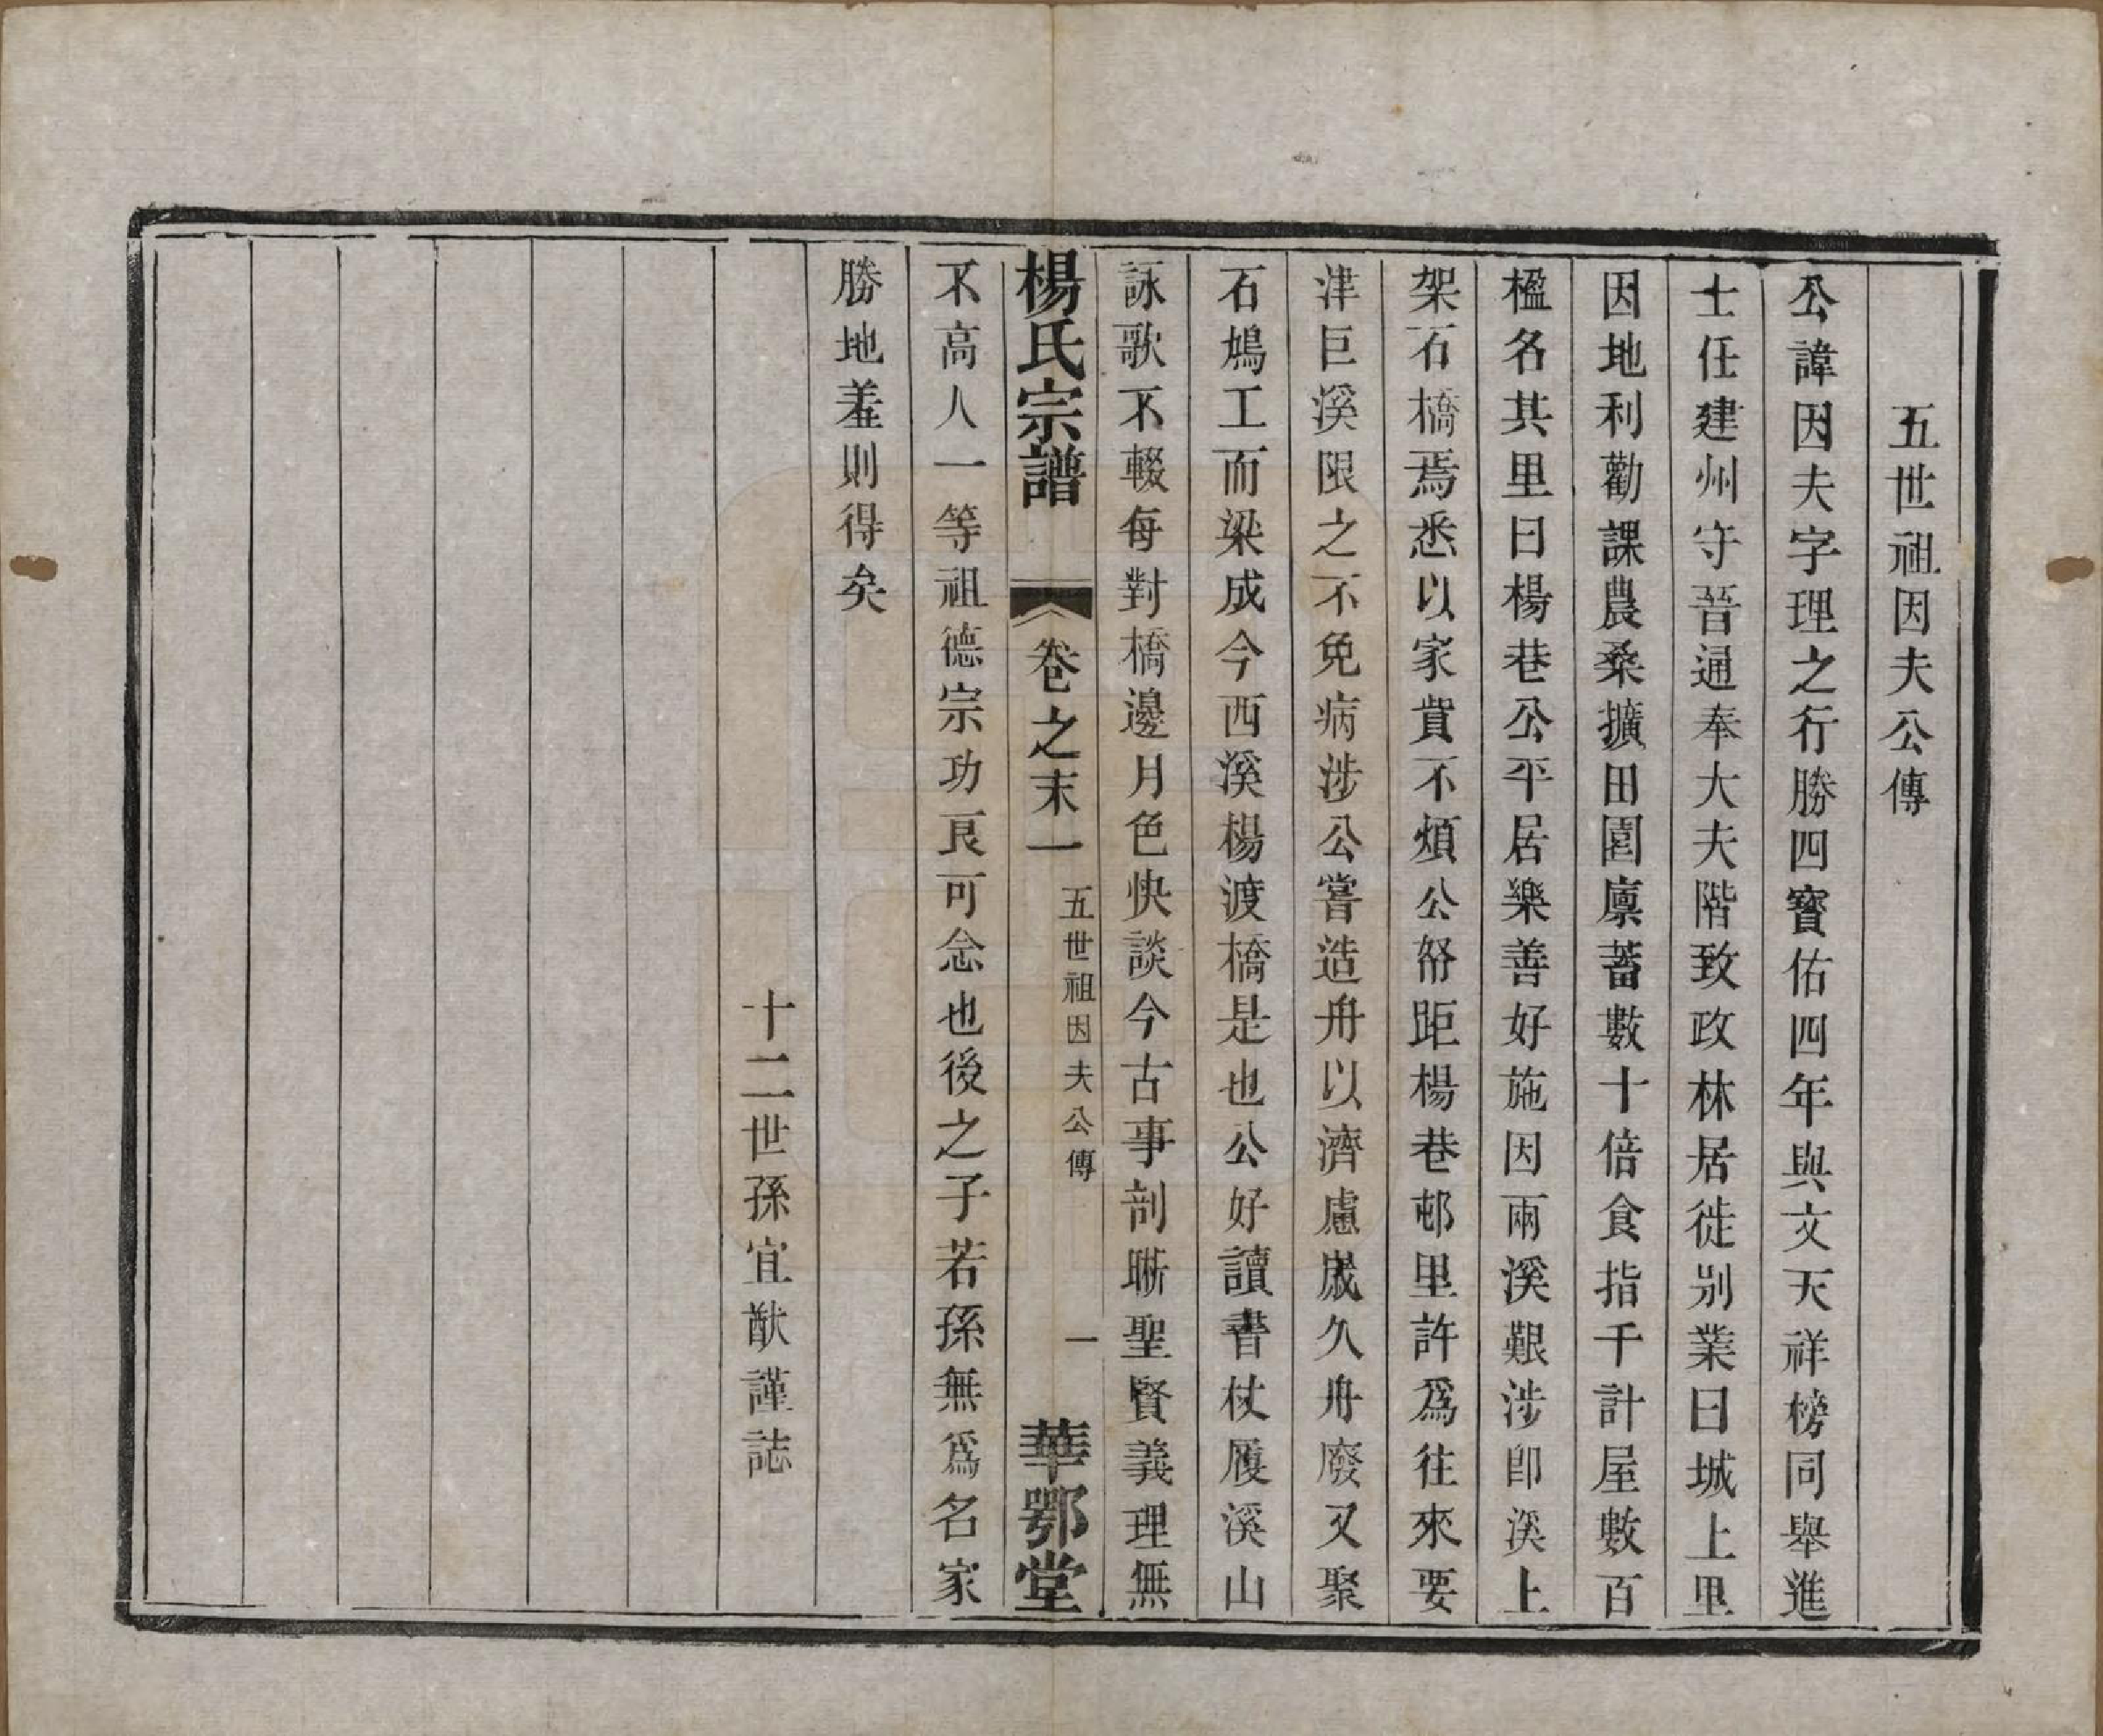 五世祖因夫公傳
公諱因夫字理之行勝四寳佑四年與文天祥榜同舉進
士任建州守晉通奉大夫階致政林居徙别業曰城上里
因地利勸課農桑擴田園廪蓄數十倍食指千計屋數百
楹名其里曰楊巷公平居樂善好施因兩溪艱涉卽溪上
架石橋焉悉以家貲不煩公帑距楊巷邨里許爲往來要
津巨溪限之不免病涉公嘗造舟以濟慮歲久舟廢又聚
石鳩工而梁成今西溪楊渡橋是也公好讀書杖履溪山
詠歌不輟每對橋邊月色快談今古事剖晰聖賢義理無
楊氏宗譜
卷之末一
五世祖因夫公傳
一
華鄂堂
不高人一等祖德宗功良可念也後之子若孫無爲名家
勝地羞則得矣
十二世孫宜猷謹誌